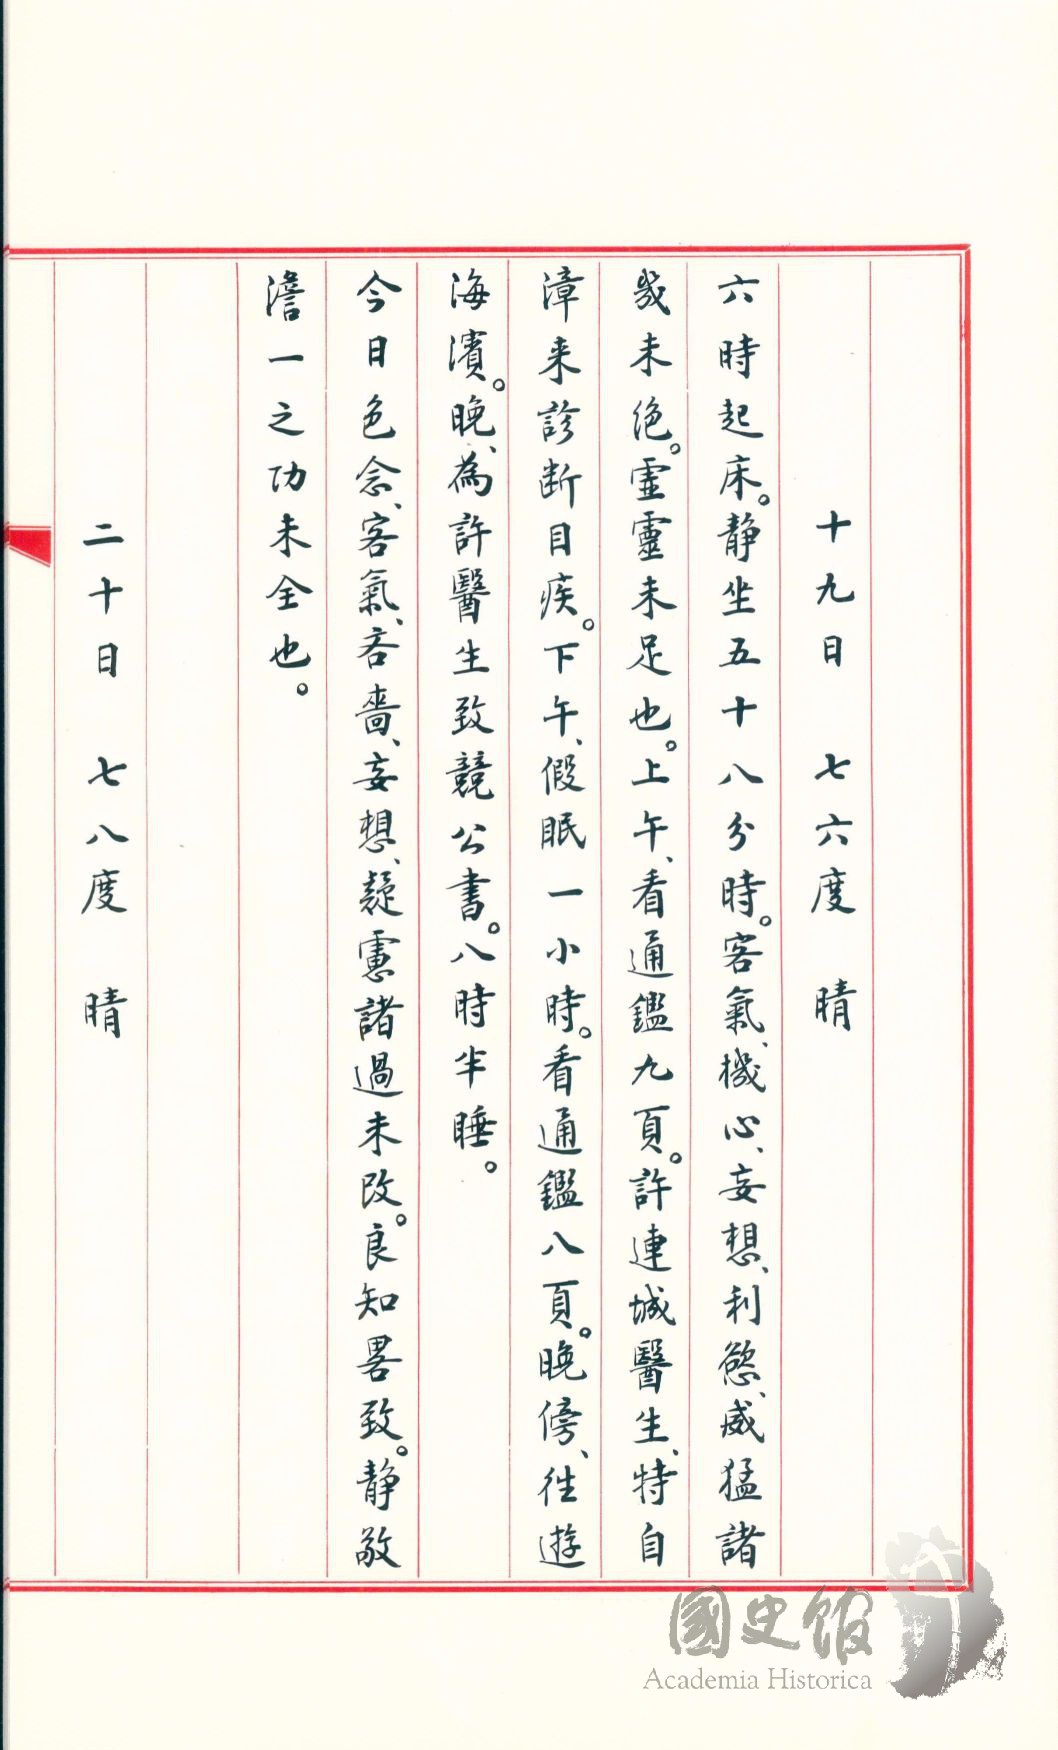 十九日　七六度　晴
六時起床。静坐五十八分時。客氣、機心、妄想、利慾、威猛諸
幾未絶。虛靈未足也。上午、看通鑑九頁。許連城醫生、特自
漳来診断目疾。下午、假眠一小時。看通鑑八頁。晚傍、往遊
海濱。晚、為許醫生致競公書。八時半睡。
今日色念、客氣、吝嗇、妄想、疑慮諸過未改。良知畧致。静敬
澹一之功未全也。
二十日　七八度　晴
國史館
Academia Historica